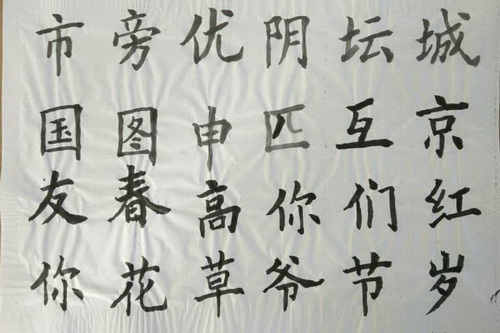 市旁优阴坛城
国图申匹互京
友春高你们红
你花草爷节岁